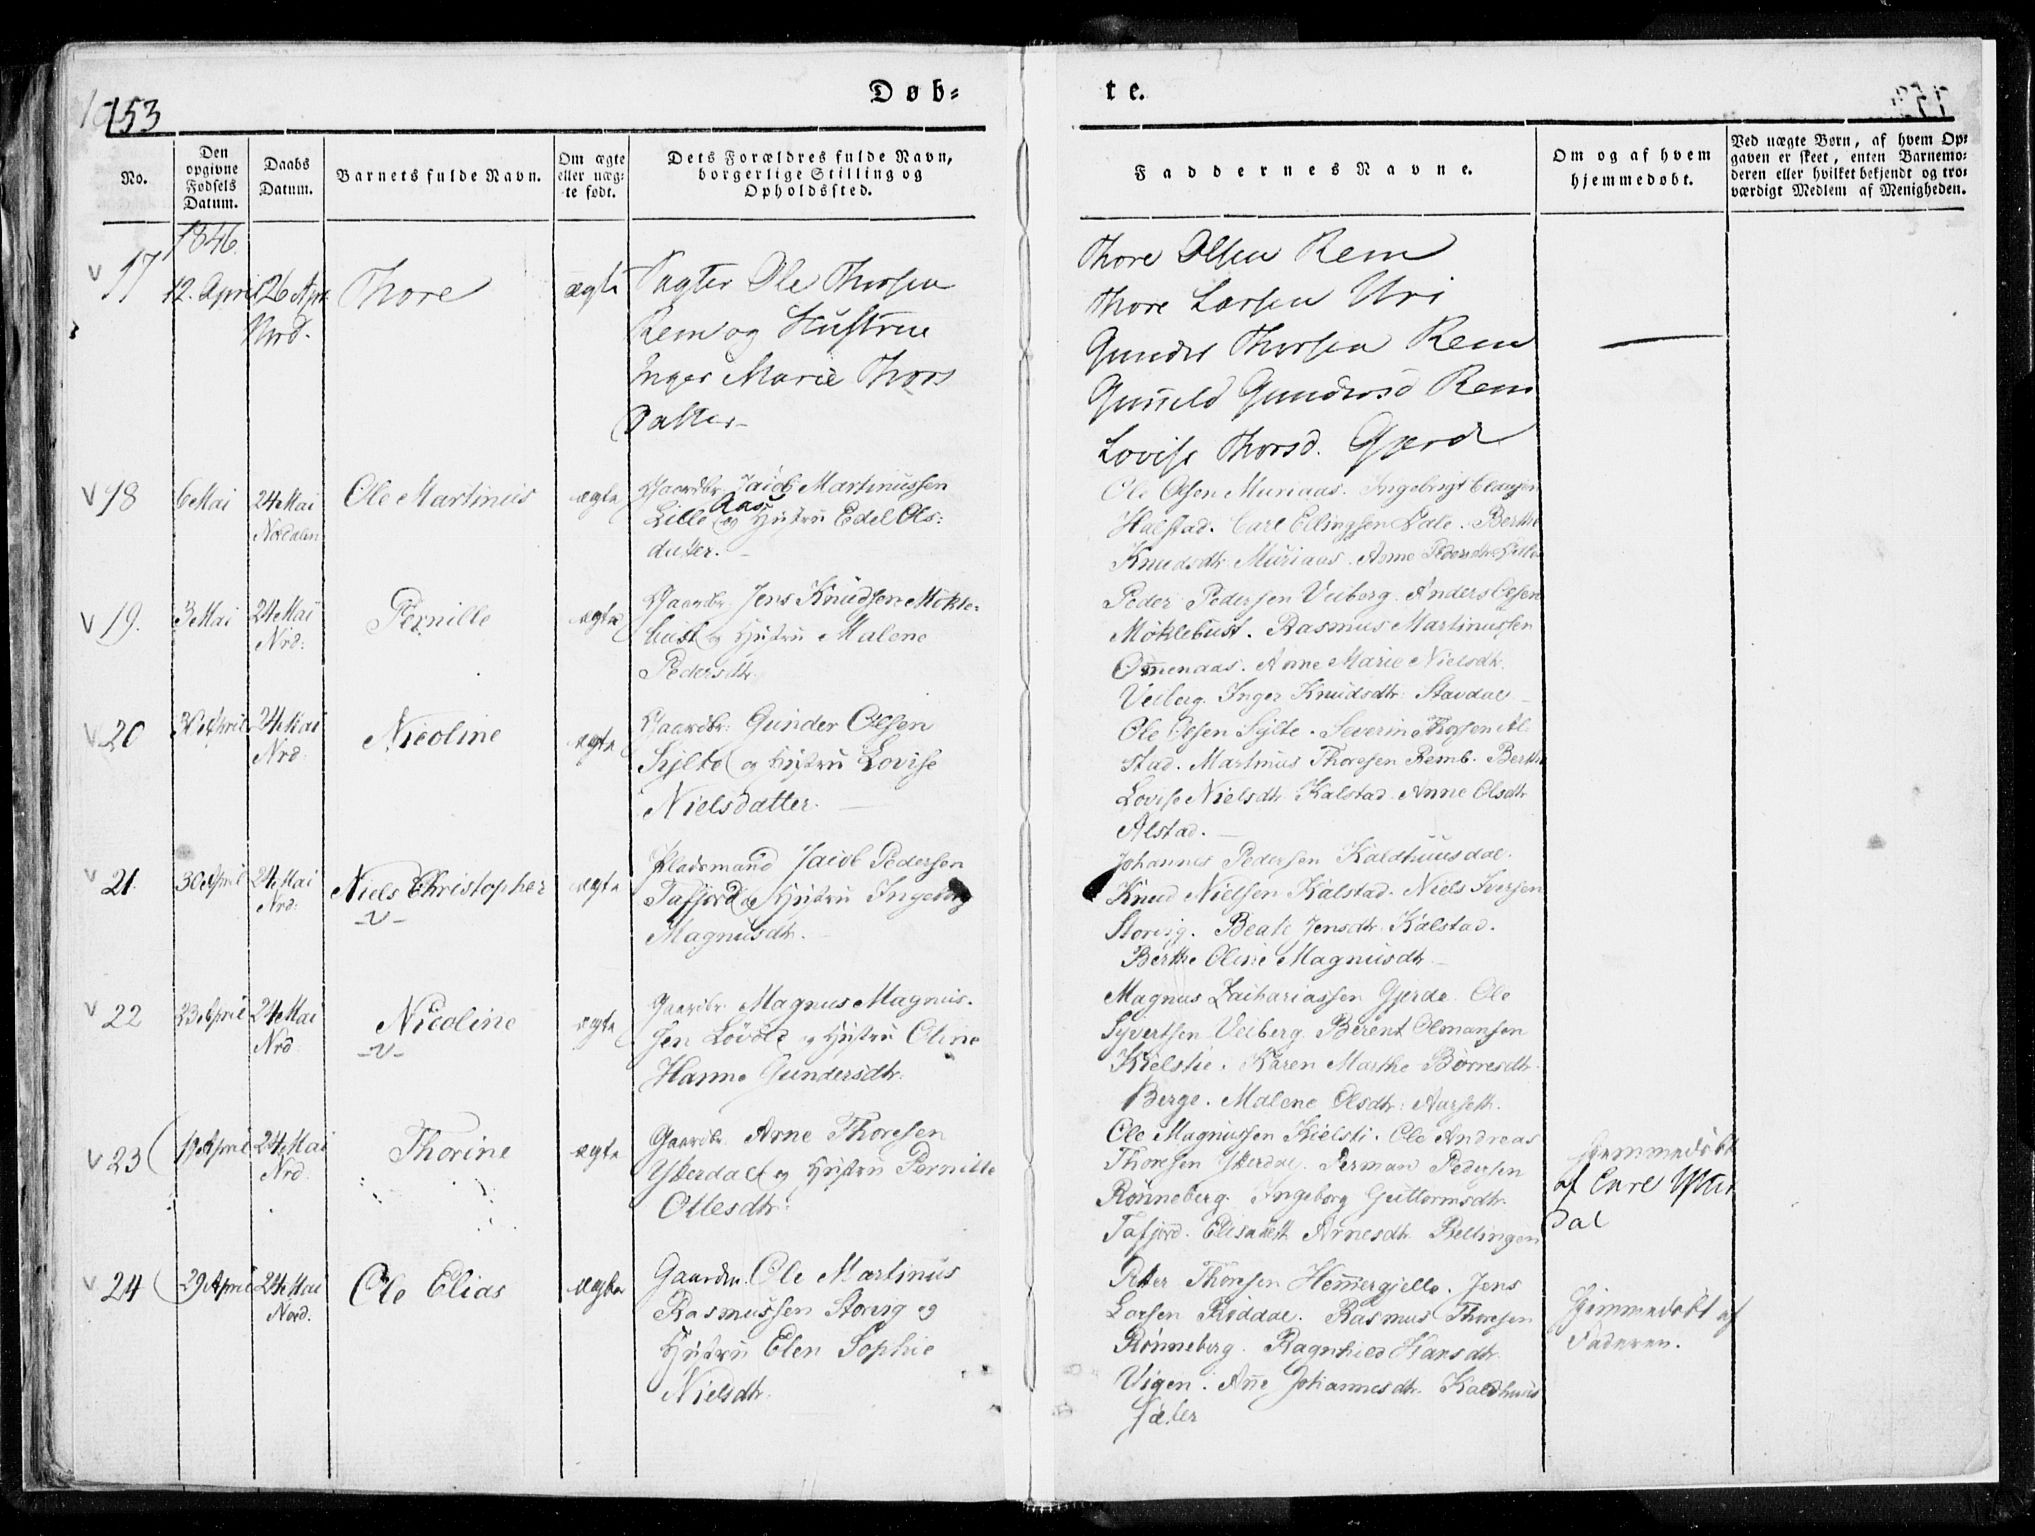 153
Døb=
te.
No.
Den opgivne Fødsels Datum.
Daabs Datum.
Barnets fulde Navn.
Om ægte eller uæg= te født.
Dets Forældres fulde Navn, borgerlige Stilling og Opholdssted.
Faddernes Navne.
Om og af hvem hjemmedøbt.
Ved uægte Børn, af hvem Op= gaven er skeet, enten Barnemo= deren eller hvilket bekjendt og tro= værdigt Medlem af Menigheden.
1846.
17
12. April
26 Apr.
Nord.
Thore
ægte
Ole Thorsen
Rem og Hustrue
Inger Marie Thors
Datter
Thore Olsen Rem
Thore Larsen Uri
Gunder Thorsen Rem
Gunild Gundersd Rem
Lovise Thorsd. Gjerd
18
6 Mai
24 Mai
Nordalen
Ole Martinus
ægte
Gaardbr. Jacob Martinussen
Lille Aas og Hustru Edel Ols:
datter.
Ole Olsen Muriaas. Ingebrigt Clausen
Halstad. Carl Ellingsen Dale. Berthe
Knudsdtr Muriaas. Anne Pedersdtr
19.
3 Mai
24 Mai
Nrd:
Pernille
ægte
Gaardbr. Jens Knudsen Møkle=
bust og Hustru Malene
Pedersdtr.
Peder Pedersen Veiberg. Anders Olsen
Møklebust. Rasmus Martinussen
Omenaas. Anne Marie Nielsdtr.
Veiberg. Inger Knudsdtr: Stavdal
20
30 April
24 Mai
Nrd.
Nicoline
ægte
Gaardbr: Gunder Olsen
Sylte og Hustru Lovise
Nielsdatter.
Ole Olsen Sylte. Severin Thorsen Al=
stad. Martinus Thoresen Remb. Berthe
Lovise Nielsdtr Kalstad. Anne Olsdtr
Alstad.
21.
30 April
24 Mai
Nrd:
Niels Christopher
-v-
ægte
Pladsmand Jacob Pedersen
Tafjord og Hustru Ingeborg
Magnusdtr.
Johannes Pedersen Kaldhuusdal.
Knud Nielsen Kalstad. Niels Iversen
Storvig. Beate Jensdtr. Kalstad.
Berthe Oline Magnusdtr.
22
23 April
24 Mai
Nrd
Nicoline
-v-
ægte
Gaardbr. Magnus Magnus=
sen Løvold og Hustru Oline
Hanne Gundersdtr.
Magnus Zachariassen Gjerde. Ole
Syvertsen Veiberg. Berent Olmansen
Kielstie. Karen Marthe Børresdtr.
Berge. Malene Olsdtr: Aarseth.
23
19 April
24 Mai
Nrd.
Thorine
ægte
Gaardbr. Arne Thoresen
Ytterdal og Hustru Pernille
Ottesdtr:
Ole Magnussen Kielsti. Ole Andreas
Thoresen Ytterdal. Perman Pedersen
Rønneberg. Ingeborg Guttormsdtr.
Tafjord. Elisabeth Arnesdtr. Rellingen
Hjemmedøbt
af
dal
24
29 April
24 Mai
Nord.
Ole Elias
ægte
Gaardm. Ole Martinus
Rasmussen Storvig og
Hustru Elen Sophie
Nielsdtr.
Peter Thoresen Hemmergjelle. Jens
Larsen Røddal. Rasmus Thoresen
Rønneberg. Ragnhild Hansdtr.
Vigen. Ane Johannesdtr. Kaldhuus
sæter
Hjemmedøbt af
Faderen.